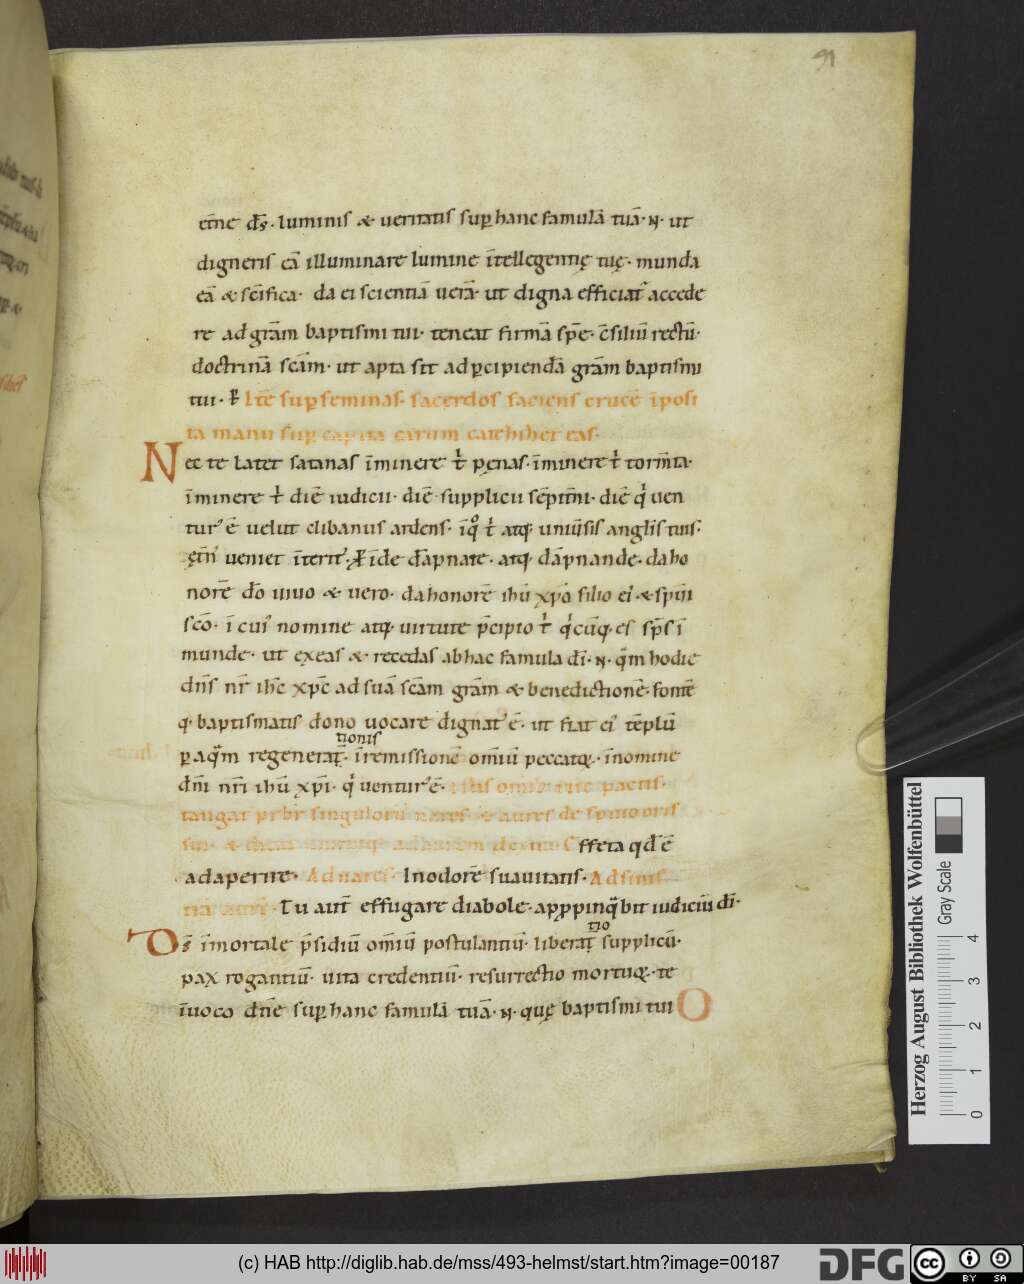 91
etne ds̄. luminis & ueritatis sup hanc famulā tuā. N. ut
digneris eā illuminare lumine ītellegentię tuę. munda
eā & sc̄ifica. da ei scientiā uerā. ut digna efficiat᷑ accede
re ad grām baptismi tui. teneat firmā spē. c̄siliū rectū.
doctrinā scām. ut apta sit ad p̄cipiendā grām baptismi
tui. P Itē sup feminas. sacerdos faciens crucē īposi
ta manu sup capita earum catehihet eas.
Nec te latet satanas īminere t̄ penas. īminere t̄ tormīta.
īminere t̄ diē iudicii. diē supplicii sēpitni. diē q̄ uen
tur᷑ ē uelut clibanus ardens. ī q̊ t̄ atq; uniūsis anglis tuis.
ęt̄n᷑ ueniet īterit᷑. P īde dāpnate. atq; dāpnande. da ho
norē dō uiuo & uero. da honorē ihū xp̄o filio ei᷑ & spūi
scō. ī cui᷑ nomine atq; uirtute p̄cipio t̄ q̄cūq; es sps ī
munde. ut exeas & recedas ab hac famula dī. N. q̄m hodie
dn̄s nr̄ ihc̄ xpc̄ ad suā scām grām & benedictionē. fontē
q; baptismatis dono uocare dignat᷑ ē. ut fiat ei᷑ tēplū
tionis
p aq̄m regenerat̄. ī remissionē om̄iū peccatoꝝ. ī nomine
dn̄i nr̄i ihū xp̄i. q̄ uentur᷑ ē.
tangat pr̄br singulorū nares & aures de sputo oris
sui. & dicat Effeta qd̄ ē
adaperire. Ad nares. In odorē suauitatis. Ad sinis
Tu aut̄ effugare diabole. appinq̄bit iudiciū dī.
tio
Ds̄ īmortale p̄sidiū om̄iū postulantiū. liberat̄ supplicū.
pax rogantiū. uita credentiū. resurrectio mortuoꝝ. te
īuoco dn̄e sup hanc famulā tuā. N. quę baptismi tui
Herzog August Bibliothek Wolfenbüttel
Gray Scale
0 1 2 3 4
(c) HAB http://diglib.hab.de/mss/493-helmst/start.htm?image=00187
DFG
cc BY SA